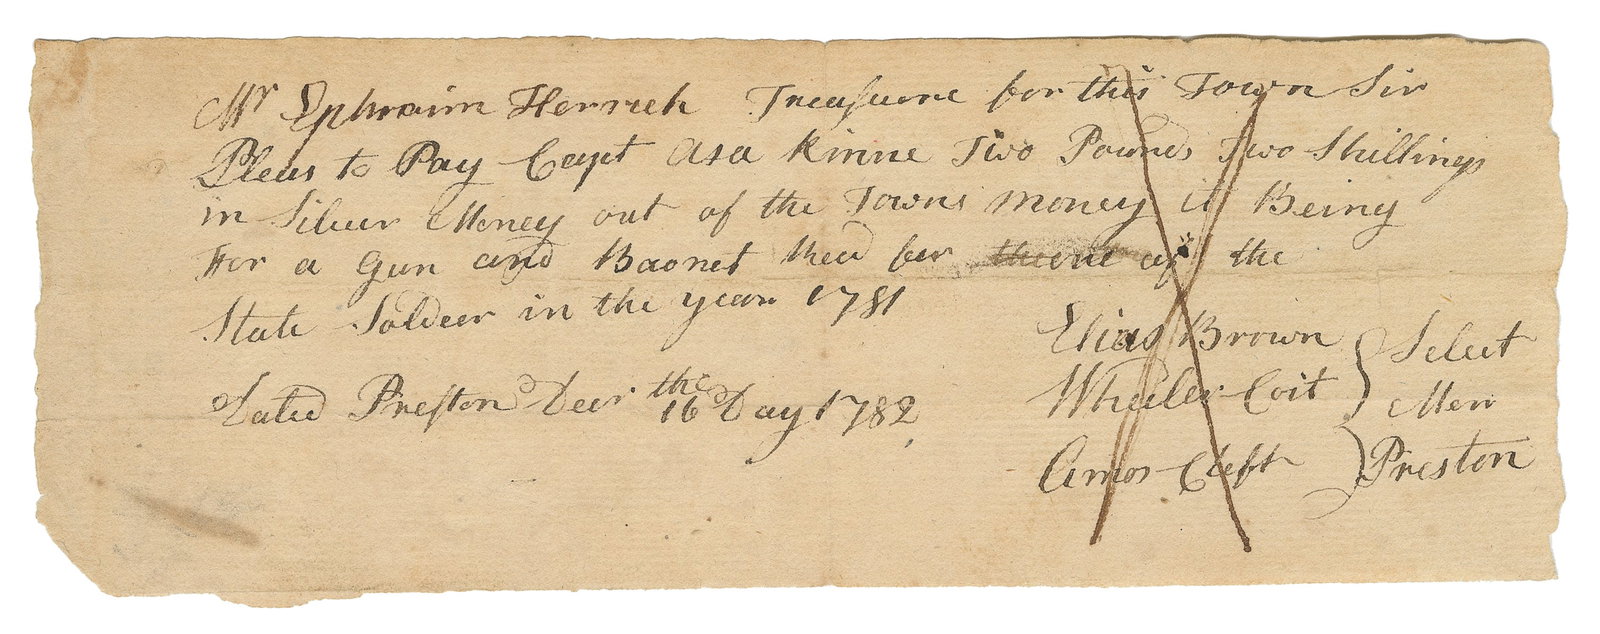 Mr Ephraim Herrick Treasurre for this Town Sir
Pleas to Pay Capt Asa Kinne Two Pounds Two Shillings
in Silver Money out of the Towns money it Being
For a Gun and Baonet for of the
State Soldeer in the year 1781
Dated Preston Decr 16the Day 1782
Elias Brown
Wheeler Coit
Amos Cleft
Select
Men
Preston